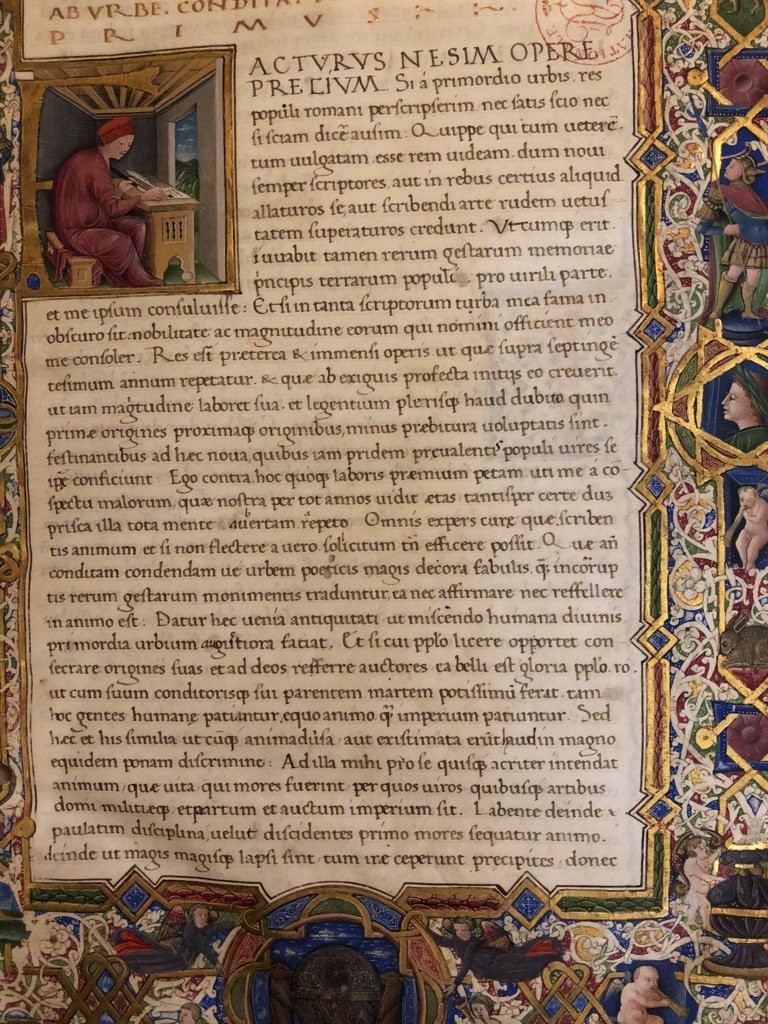 AB VRBE. CONDITA.
P R I M V S
ACTVRVS NE SIM OPERE
PRETIVM. Si á primordio urbis, res
populi romani perscripserim, nec satis scio nec
si sciam dicē ausim: Quippe qui tum ueterē.
tum uulgatam esse rem uideam. dum noui
semper scriptores, aut in rebus certius aliquid
allaturos se, aut scribendi arte rudem uetus
tatem superaturos credunt. Vtcumq; erit.
iuuabit tamen rerum gestarum memoriae
p̄ncipis terrarum populi pro uirili parte.
et me ipsum consuluisse: Et si in tanta scriptorum turba mea fama in
obscuro sit. nobilitate ac magnitudine eorum qui nomini officient meo
me consoler. Res est preterea & immensi operis ut quę supra septingē
tesimum annum repetatur. & quę ab exiguis profecta initijs eo creuerit.
ut iam magtudine laboret sua. et legentium plerisq; haud dubito quin
primę origines proximaq; originibus, minus prebitura uoluptatis sint.
festinantibus ad hęc noua, quibus iam pridem preualentis populi uires se
ip̄e conficiunt: Ego contra, hoc quoq; laboris pręmium petam. uti me á cō
spectu malorum, quę nostra per tot annos uidit ętas tantisper certe dum
prisca illa tota mente auertam repeto. Omnis expers curę quę scriben
tis animum et si non flectere a uero solicitum tn̄ efficere possit. Quę añ
conditam condendam ue urbem poeticis magis decora fabulis, q̄ incorup
tis rerum gestarum monimentis traduntur, ea nec affirmare nec reffellere
in animo est: Datur hęc uenia antiquitati ut miscendo humana diuinis
primordia urbium augustiora faciat. Et si cui pplo licere opportet con
secrare origines suas et ad deos refferre auctores. ea belli est gloria pplo. ro.
ut cum suum conditorisq; sui parentem martem potissimū ferat. tam
hoc gentes humanę patiantur, equo animo q̄ imperium patiuntur. Sed
hęc et his similia ut cūq; animaduersa aut existimata erūt haud in magno
equidem ponam discrimine: Ad illa mihi pro se quisq; acriter intendat
animum, quę uita qui mores fuerint. per quos uiros quibusq; artibus
domi militięq; et partum et auctum imperium sit. Labente deinde
paulatim disciplina, uelut discidentes primo mores sequatur animo.
deinde ut magis magisq; lapsi sint, tum ire ceperunt precipites, donec